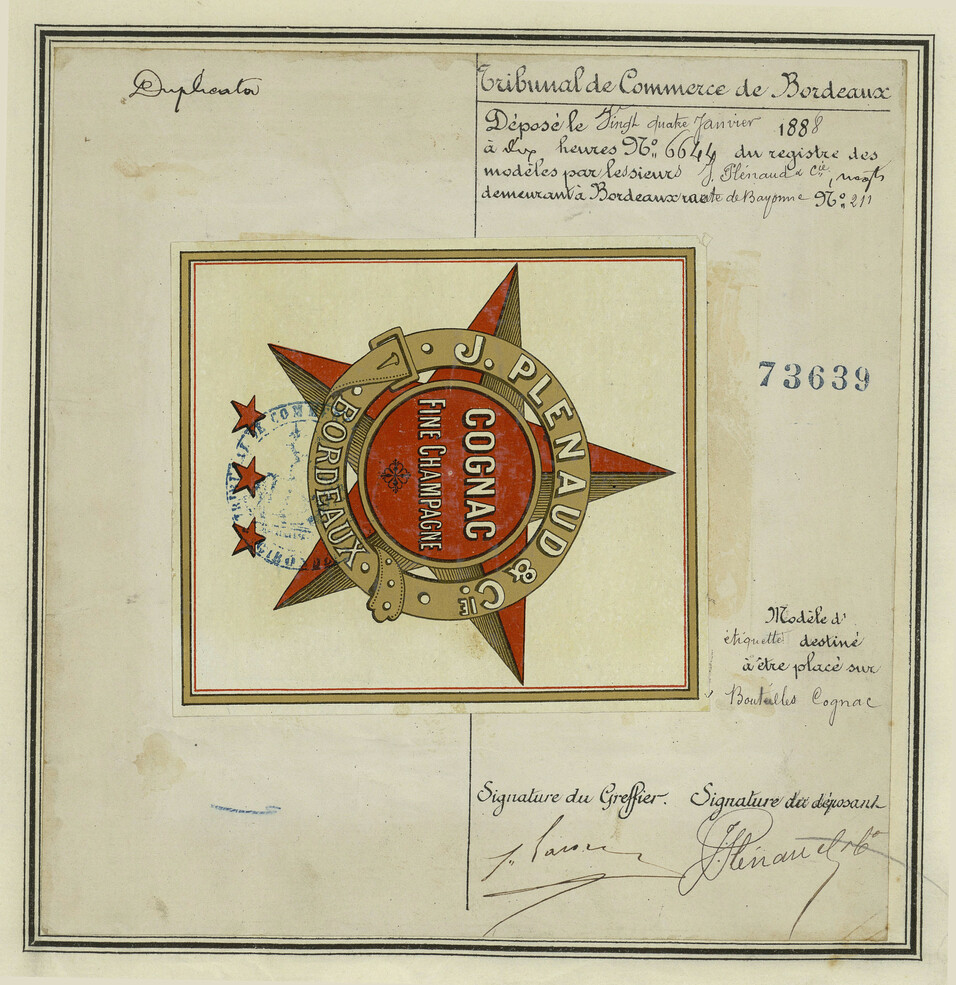 Duplicata
Tribunal de Commerce de Bordeaux
Déposé le Vingt quatre Janvier 1888
à dix heures No. 6644 du registre des
modèles par lessieurs J. Plénaud & Cie, négts
demeurant à Bordeaux route de Bayonne No. 211
J. PLENAUD & CIE
COGNAC
FINE CHAMPAGNE
BORDEAUX
73639
Modèle d'
étiquette destiné
à être placé sur
Bouteilles Cognac
Signature du Greffier. Signature du déposant
J. Plénaud & Co